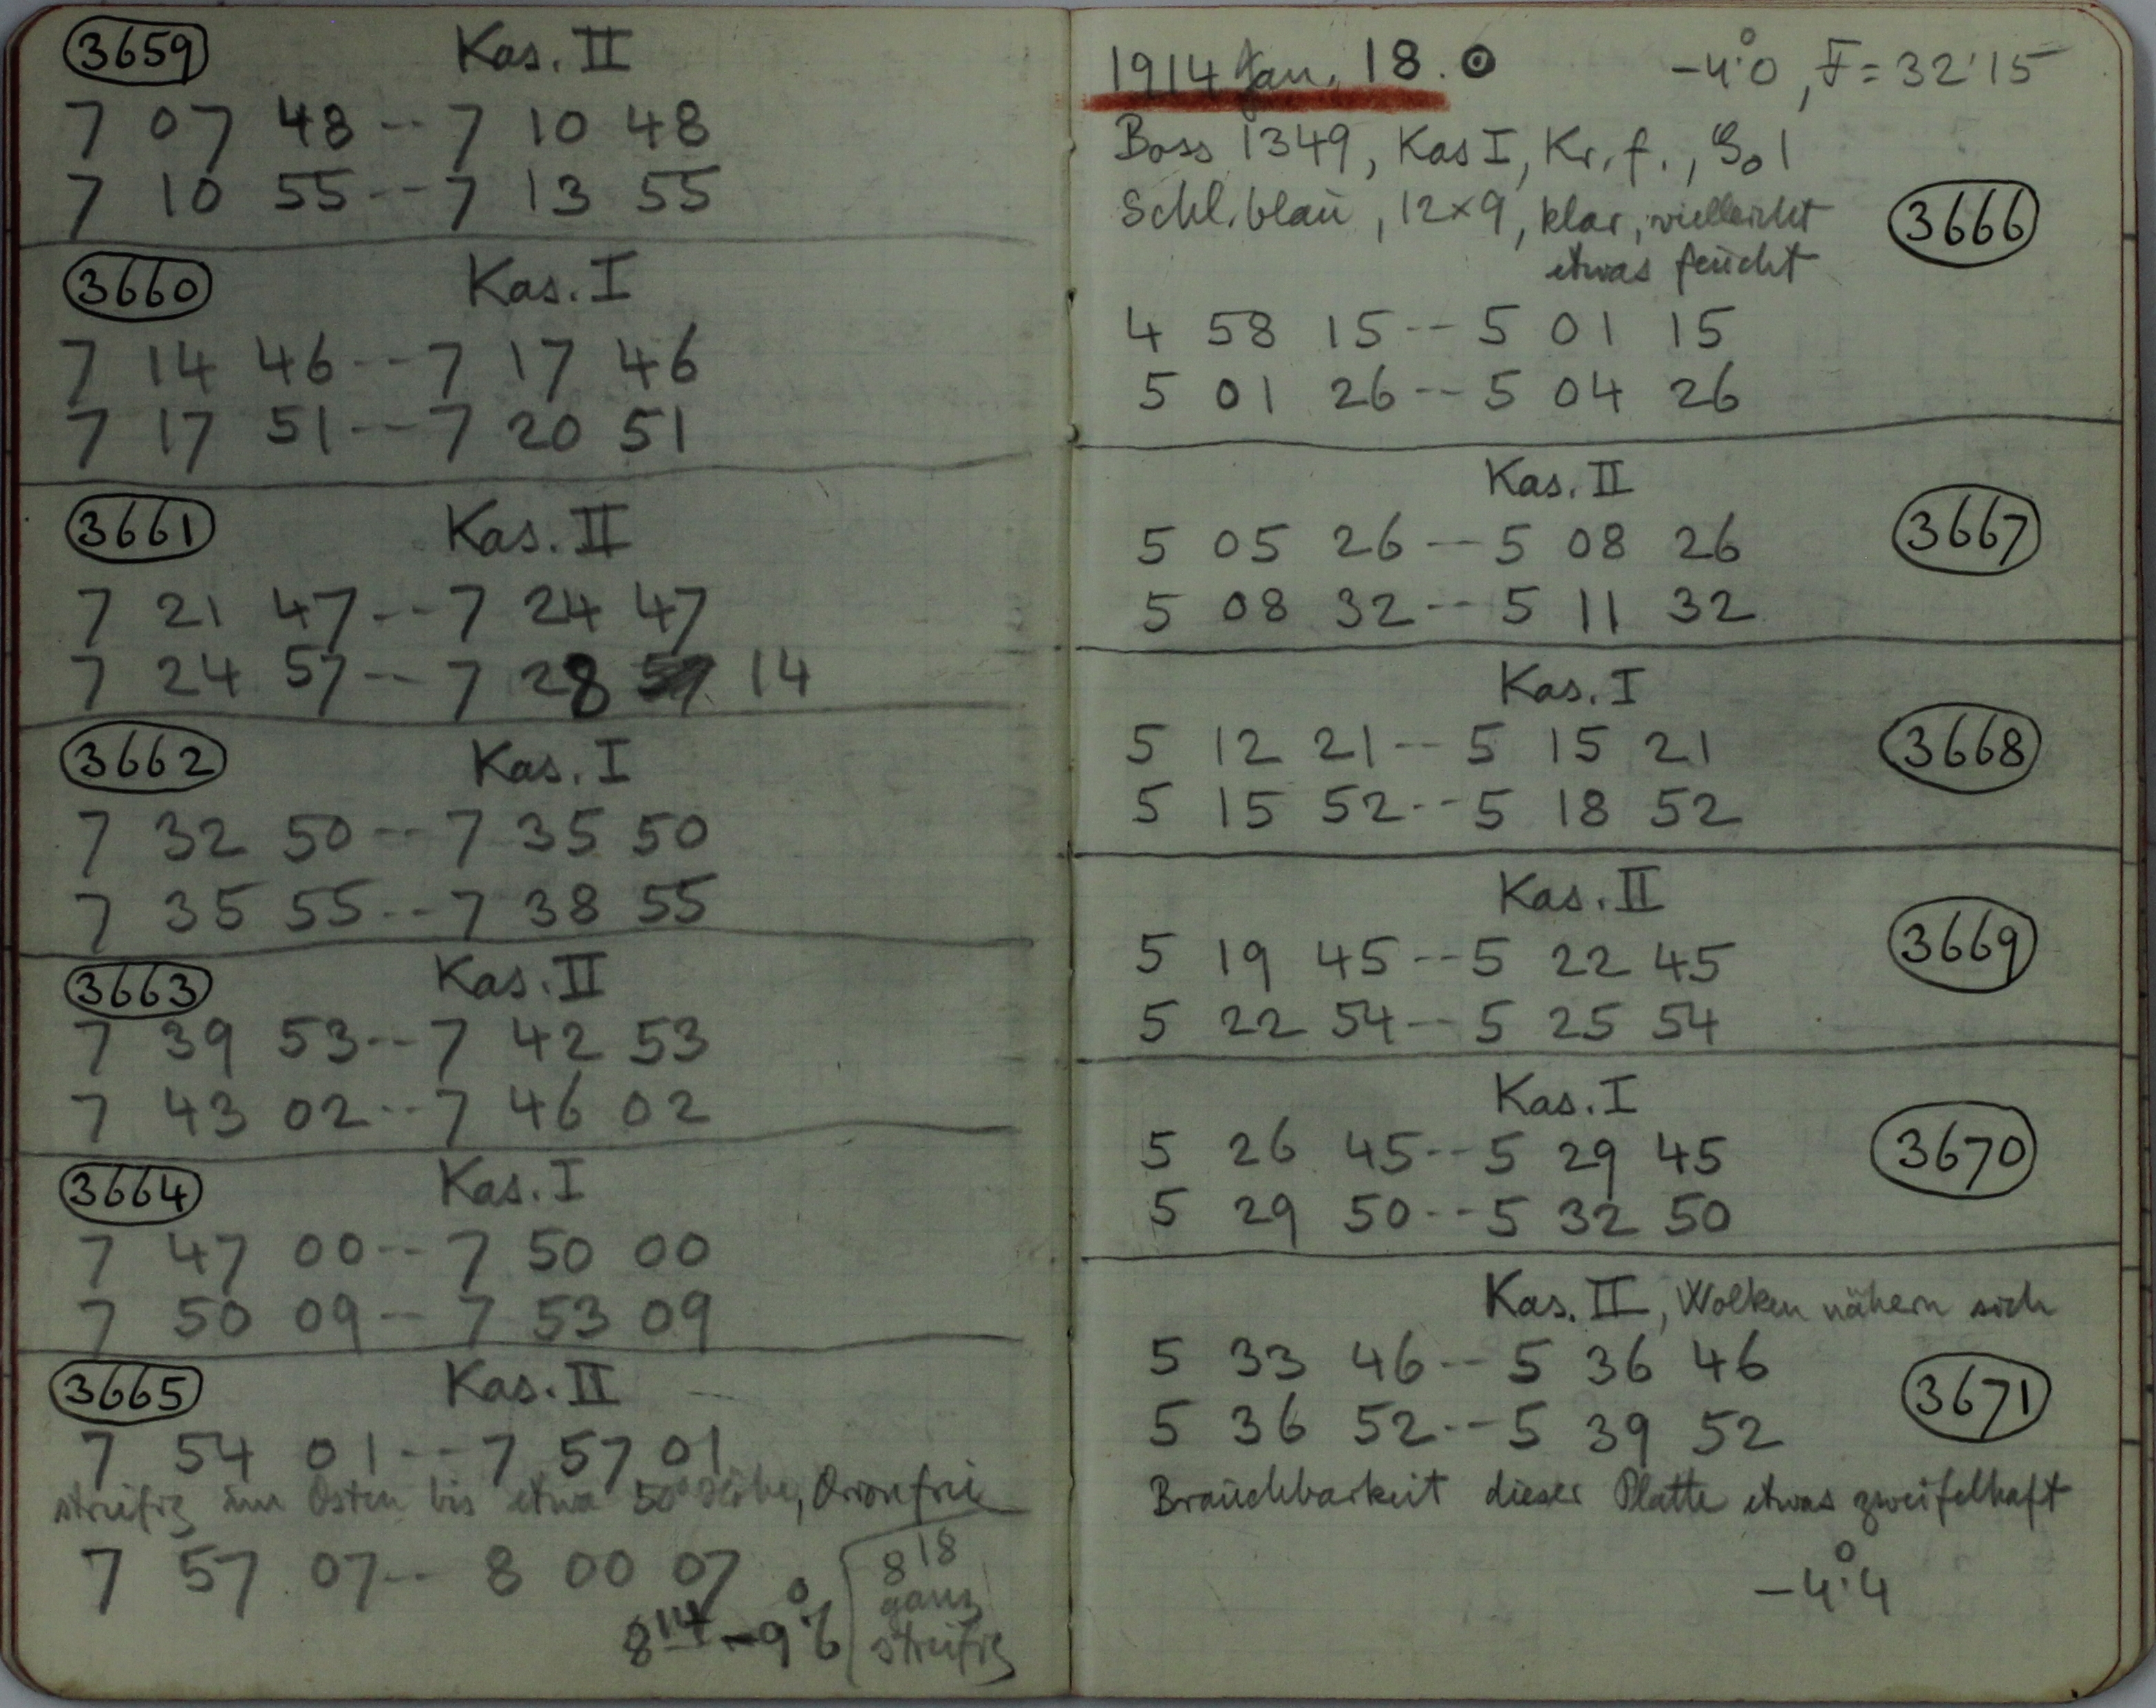 3659 Kas. II
7 07 48 -- 7 10 48
7 10 55 -- 7 13 55
3660 Kas. I
7 14 46 -- 7 17 46
7 17 51 -- 7 20 51
3661 Kas. II
7 21 47 -- 7 24 47
7 24 57 -- 7 28 14
3662 Kas. I
7 32 50 -- 7 35 50
7 35 55 -- 7 38 55
3663 Kas. II
7 39 53 -- 7 42 53
7 43 02 -- 7 46 02
3664 Kas. I
7 47 00 -- 7 50 00
7 50 09 -- 7 53 09
3665 Kas. II
7 54 01 -- 7 57 01
streifig im Osten bis etwa 50° Höhe, Orion frei
7 57 07 -- 8 00 07
8 14 -9°.6
8 18
ganz
streifig
1914 Jan. 18. ☉ -4°.0, F = 32'15
Boss 1349, Kas I, Kr. f.,
Schl. blau, 12×9, klar, vielleicht
etwas feucht
3666
4 58 15 -- 5 01 15
5 01 26 -- 5 04 26
Kas. II
3667
5 05 26 -- 5 08 26
5 08 32 -- 5 11 32
Kas. I
3668
5 12 21 -- 5 15 21
5 15 52 -- 5 18 52
Kas. II
3669
5 19 45 -- 5 22 45
5 22 54 -- 5 25 54
Kas. I
3670
5 26 45 -- 5 29 45
5 29 50 -- 5 32 50
Kas. II, Wolken nähern sich
5 33 46 -- 5 36 46
3671
5 36 52 -- 5 39 52
Brauchbarkeit dieser Platte etwas zweifelhaft
-4°.4